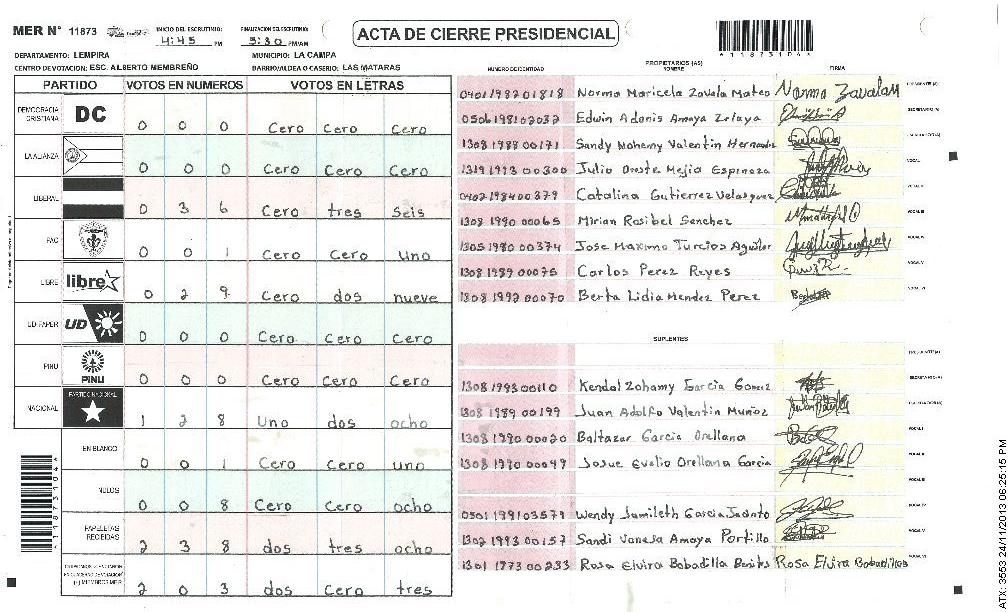 MER N° 11873
INICIO DEL ESCRUTINIO: 4:45 PM
FINALIZACION DEL ESCRUTINIO: 5:30 PM/AM
ACTA DE CIERRE PRESIDENCIAL
DEPARTAMENTO: LEMPIRA
MUNICIPIO: LA CAMPA
CENTRO DE VOTACION: ESC. ALBERTO MEMBREÑO
BARRIO/ALDEA O CASERIO: LAS MATARAS
PARTIDO VOTOS EN NUMEROS VOTOS EN LETRAS
DEMOCRACIA CRISTIANA DC 0 0 0 Cero Cero Cero
LA ALIANZA 0 0 0 Cero Cero Cero
LIBERAL 0 3 6 Cero tres Seis
PAC 0 0 1 Cero Cero Uno
LIBRE libre 0 2 9 Cero dos nueve
UD FAPER UD 0 0 0 Cero Cero Cero
PINU PINU 0 0 0 Cero Cero Cero
NACIONAL PARTIDO NACIONAL 1 2 8 Uno dos ocho
EN BLANCO 0 0 1 Cero Cero uno
NULOS 0 0 8 Cero Cero ocho
PAPELETAS RECIBIDAS 2 3 8 dos tres ocho
2 0 3 dos Cero tres
PROPIETARIOS (AS)
NUMERO DE IDENTIDAD NOMBRE FIRMA
0401198201818 Norma Maricela Zavala Mateo Norma Zavala M PRESIDENTE (A)
0506198102032 Edwin Adonis Amaya Zelaya SECRETARIO (A)
1308 1988 00171 Sandy Nohemy Valentin Hernandez
1319 1993 00300 Julio Oreste Mejia Espinoza VOCAL I
0402 198400379 Catalina Gutierrez Velasquez VOCAL II
1308 1990 00065 Mirian Rosibel Sanchez VOCAL III
1305 1980 00374 Jose Maximo Turcios Aguilar VOCAL IV
1308 1989 00075 Carlos Perez Reyes VOCAL V
1308 1992 00070 Berta Lidia Mendez Perez VOCAL VI
SUPLENTES
PRESIDENTE (A)
1308 1993 00110 Kendal Zohamy Garcia Gomez SECRETARIO (A)
1308 1989 00199 Juan Adolfo Valentin Muñoz
1308 1990 00020 Baltazar Garcia Orellana VOCAL I
1308 1990 00049 Josue Evelio Orellana Garcia VOCAL II
0501 199103579 Wendy Jamileth Garcia Jacinto VOCAL IV
1302 1993 00157 Sandi Vanesa Amaya Portillo VOCAL V
1301 1973 00233 Rosa Elvira Bobadilla Benites Rosa Elvira Bobadilla B VOCAL VI
ATX: 3553 24/11/2013 06:25:15 PM